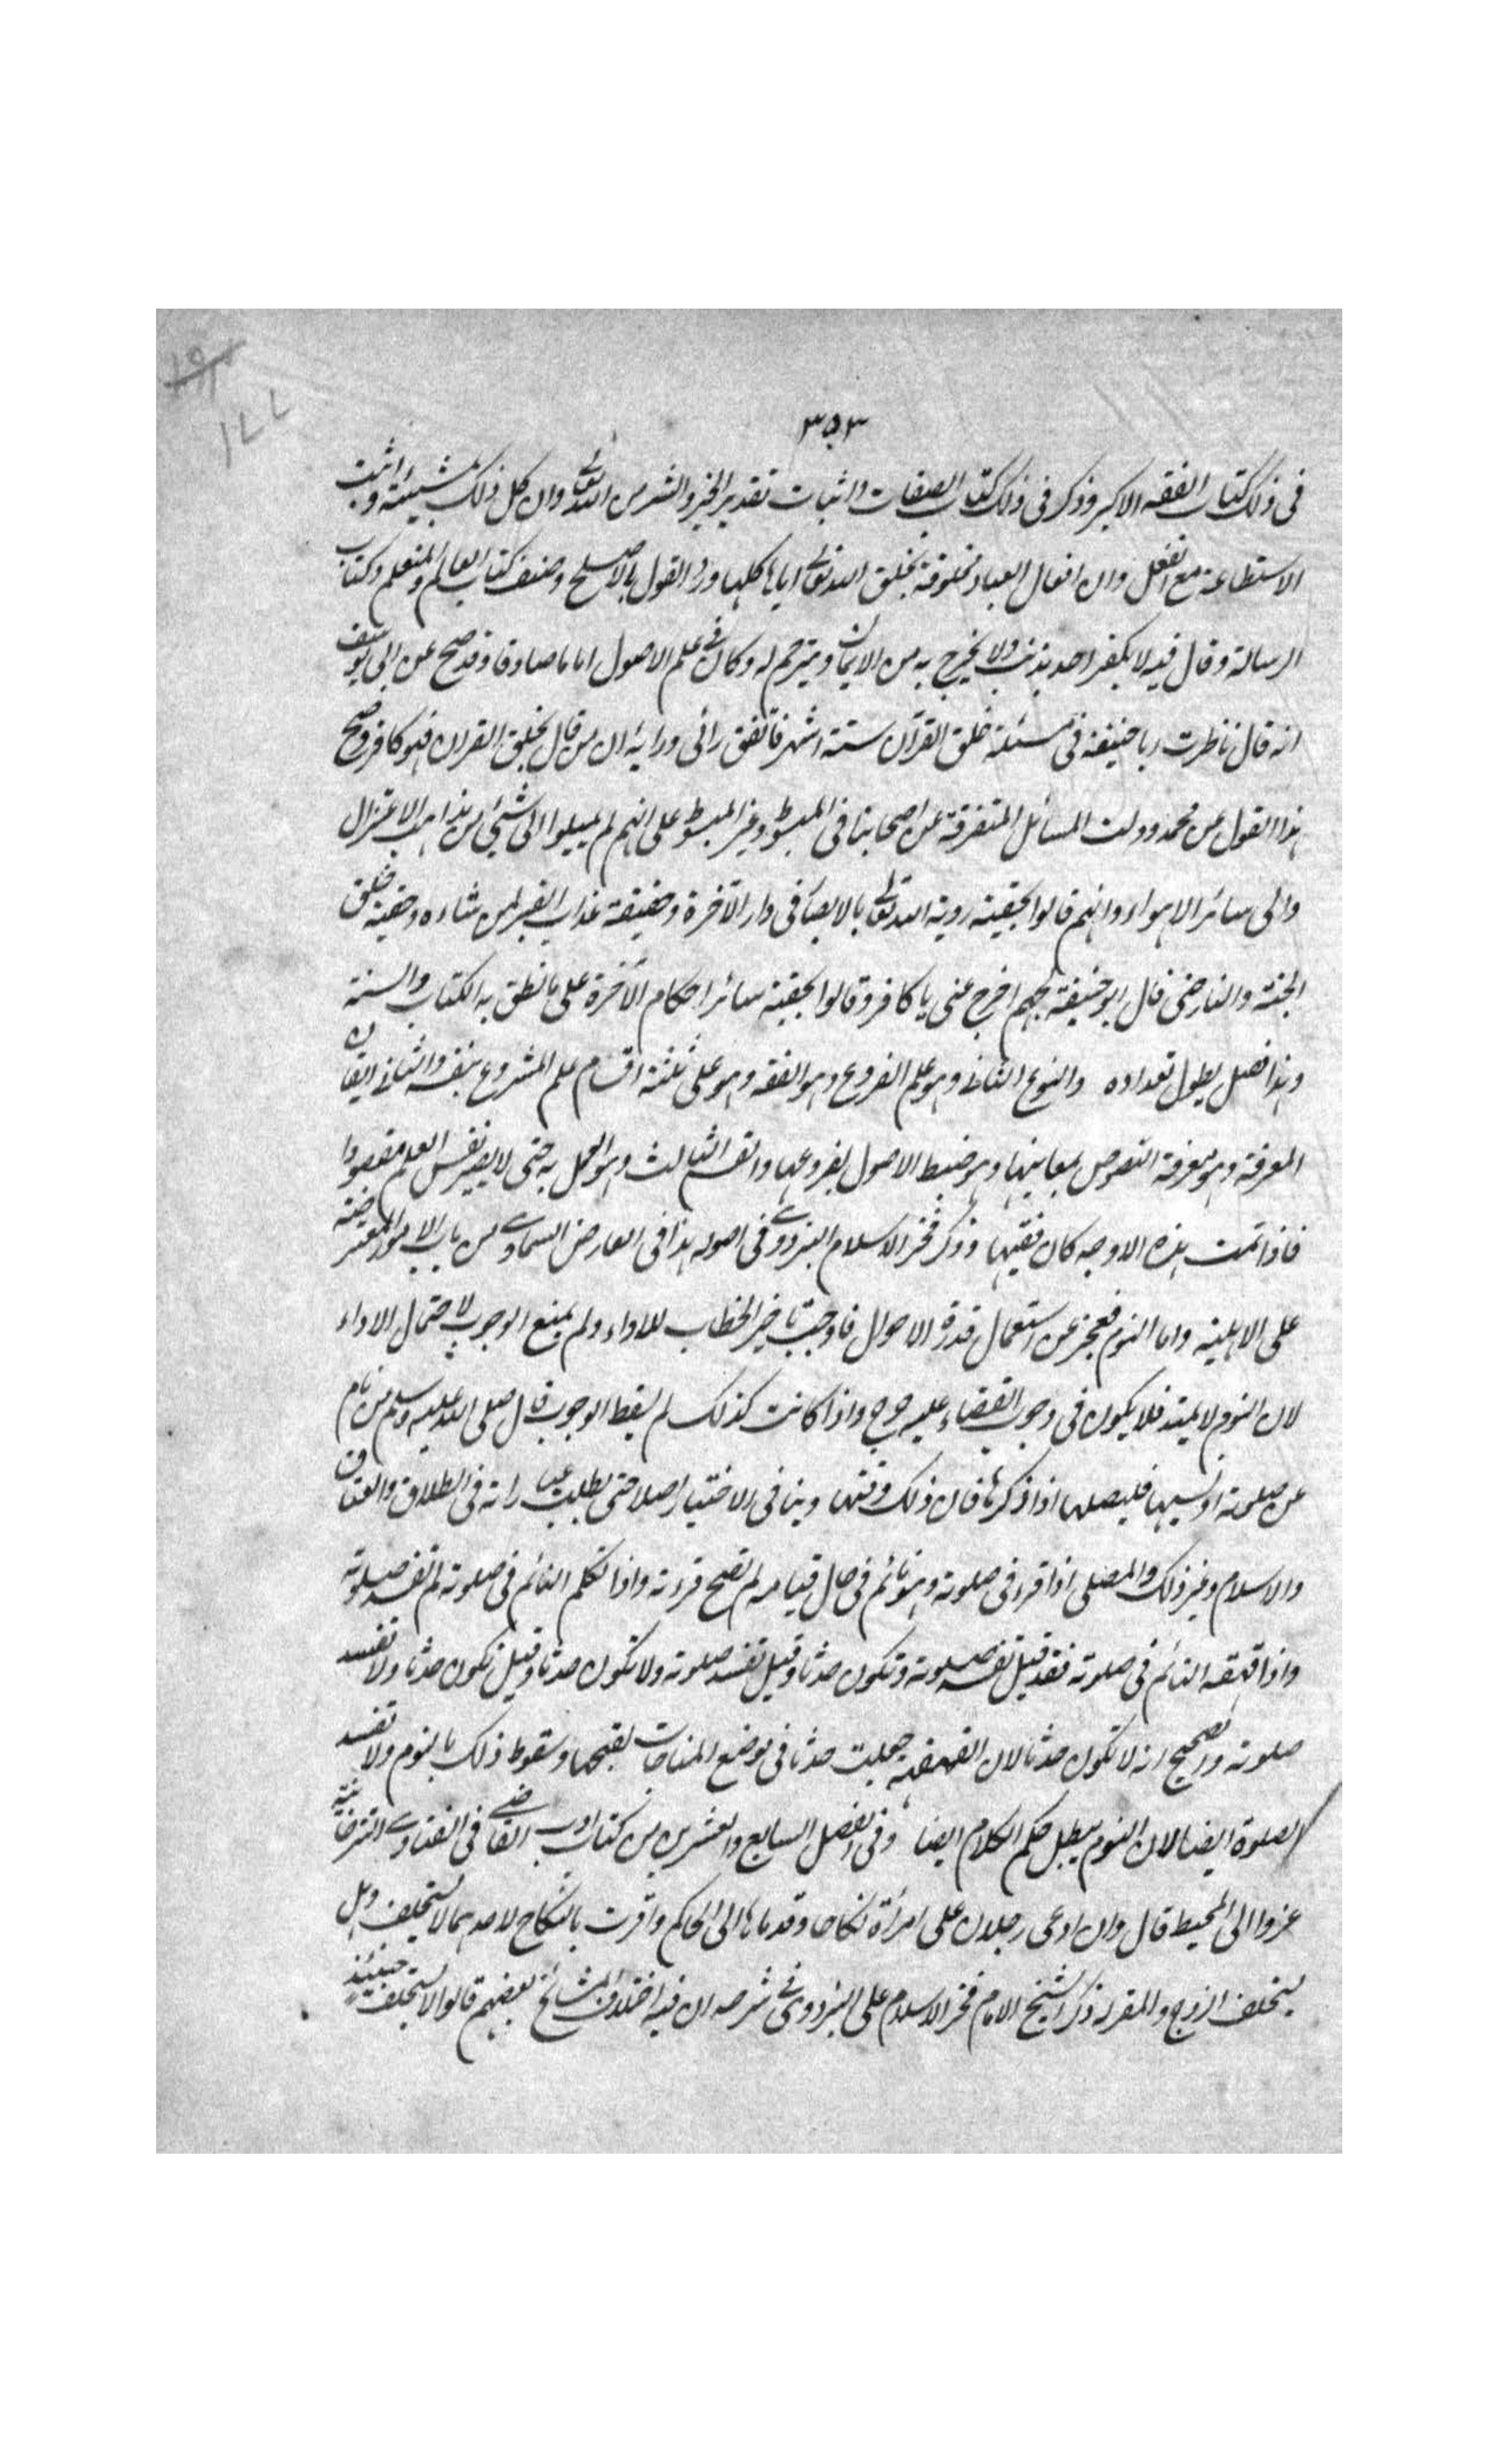 ١٩١
١٧٧
٣٥٣
فى ذلك كتاب الفقه الاكبر وذكر فى ذلك كتاب الصفات واثبات تقدير الخير والشر من الله تعالى وان كل ذلك بمشيئته واثبت
الاستطاعة مع الفعل وان افعال العباد مخلوقة بخلق الله تعالى اياها كلها ورد القول بالاصلح وصنف كتاب العالم والمتعلم وكتاب
الرسالة وقال فيه لا يكفر احد بذنب ولا يخرج به من الايمان ويترحم له وكان فى علم الاصول اماما صادقا وقد صح عن ابى يوسف
انه قال ناظرت ابا حنيفة فى مسئلة خلق القرآن ستة اشهر فاتفق رائى ورايه ان من قال بخلق القران فهو كافر وصح
هذا القول من محمد ودلت المسائل المتفرقة عن اصحابنا فى المبسوط وغير المبسوط على انهم لم يميلوا الى شئ من مذاهب الاعتزال
والى سائر الاهواء وانهم قالوا بحقية روية الله تعالى بالابصار فى دار الآخرة وحقيقة عذاب القبر لمن شاءه وحقية خلق
الجنة والنار حتى قال ابو حنيفة لجهم اخرج عنى يا كافر وقالوا بحقية سائر احكام الآخرة على ما نطق به الكتاب والسنة
وهذا فصل يطول تعداده والنوع الثانى وهو علم الفروع وهو الفقه وهو على ثلثة اقسام علم المشروع بنفسه والثانى اتقان
المعرفة وهو معرفة النصوص بمعانيها وهو ضبط الاصول بفروعها والقسم الثالث وهو العمل به حتى لا يصير نفس العلم مقصودا
فاذا تمت هذه الاوجه كان فقيها وذكر فخر الاسلام البزدوى فى اصوله هذا فى العارض السماوى من باب الامور المعترضة
على الاهلية واما النوم فعجز عن استعمال قدرة الاحوال فاوجب تاخير الخطاب للاداء ولم يمنع الوجوب لاحتمال الاداء
لان النوم لا يمتد فلا يكون فى وجوب القضاء عليه حرج واذا كانت كذلك لم يسقط الوجوب قال صلى الله عليه وسلم من نام
عن صلوته او نسيها فليصلها اذا ذكرها فان ذلك وقتها وينافى الاختيار اصلا حتى بطلت عباراته فى الطلاق والعتاق
والاسلام وغير ذلك والمصلى اذا قرء فى صلوته وهو نائم فى حال قيامه لم تصح قرءته واذا تكلم النائم فى صلوته لم تفسد صلوته
واذا قهقه النائم فى صلوته فقد قيل تفسد صلوته وتكون حدثا وقيل تفسد صلوته ولا تكون حدثا وقيل تكون حدثا ولا تفسد
صلوته والصحيح انه لا تكون حدثا لان القهقهة جعلت حدثا فى موضع المناجات لقبحها وسقوط ذلك بالنوم ولا تفسد
الصلوة ايضا لان النوم يبطل حكم الكلام ايضا وفى الفصل السابع والعشرين من كتاب ادب القاضى فى الفتاوى التترخانية
عزوا الى المحيط قال وان ادعى رجلان على امراة نكاحا وقدماها الى الحاكم واقرت بالنكاح لاحدهما لا تستحلف وهل
يستحلف الزوج والمقر له ذكر الشيخ الامام فخر الاسلام على البزدوى فى شرحه ان فيه اختلاف المشائخ بعضهم قالوا لا يستحلف حينئذ